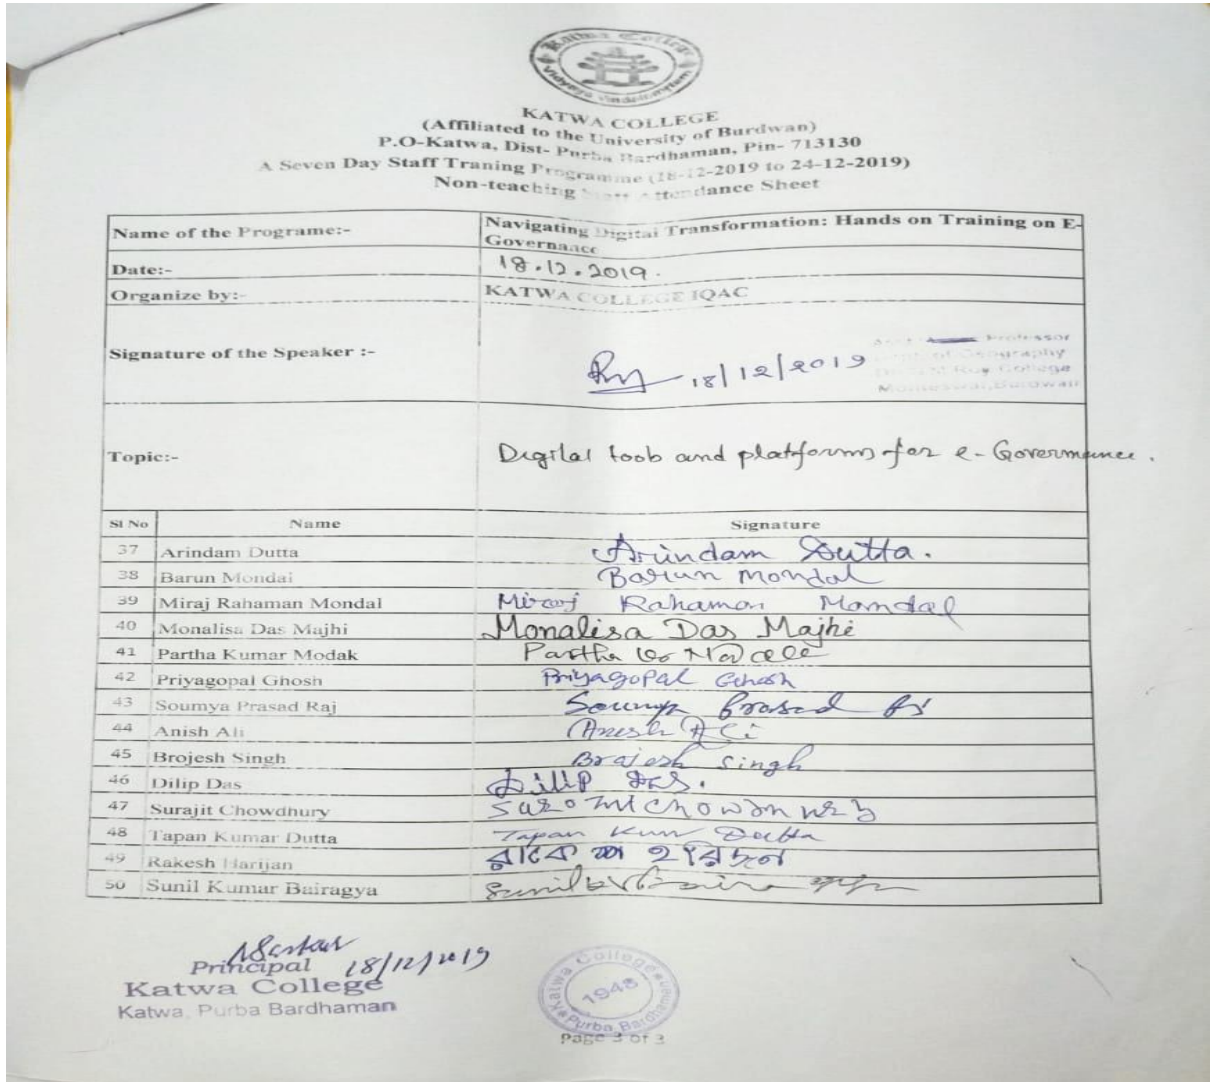 Katwa College
KATWA COLLEGE
(Affiliated to the University of Burdwan)
P.O-Katwa, Dist- Purba Bardhaman, Pin- 713130
A Seven Day Staff Traning Programme (18-12-2019 to 24-12-2019)
Non-teaching Staff Attendance Sheet
Name of the Programe:- Navigating Digital Transformation: Hands on Training on E-
Governance
Date:- 18.12.2019.
Organize by:- KATWA COLLEGE IQAC
Professor
Signature of the Speaker :- 18/12/2019 of Geography
Roy College
Burdwan
Topic:- Digital tools and platforms for e-Governance.
Sl No Name Signature
37 Arindam Dutta Arindam Dutta.
38 Barun Mondal Barun Mondal
39 Miraj Rahaman Mondal Miraj Rahaman Mondal
40 Monalisa Das Majhi Monalisa Das Majhi
41 Partha Kumar Modak Partha
42 Priyagopal Ghosh Priyagopal Ghosh
43 Soumya Prasad Raj Soumya Prasad
44 Anish Ali Anish Ali
45 Brojesh Singh Brajesh Singh
46 Dilip Das Dilip Das.
47 Surajit Chowdhury
48 Tapan Kumar Dutta Tapan Kum Dutta
49 Rakesh Harijan রাকেশ হরিজন
50 Sunil Kumar Bairagya Sunil
18/12/2019
Principal
Katwa College
Katwa, Purba Bardhaman
Katwa College
1948
Purba Bardhaman
Page 3 of 3